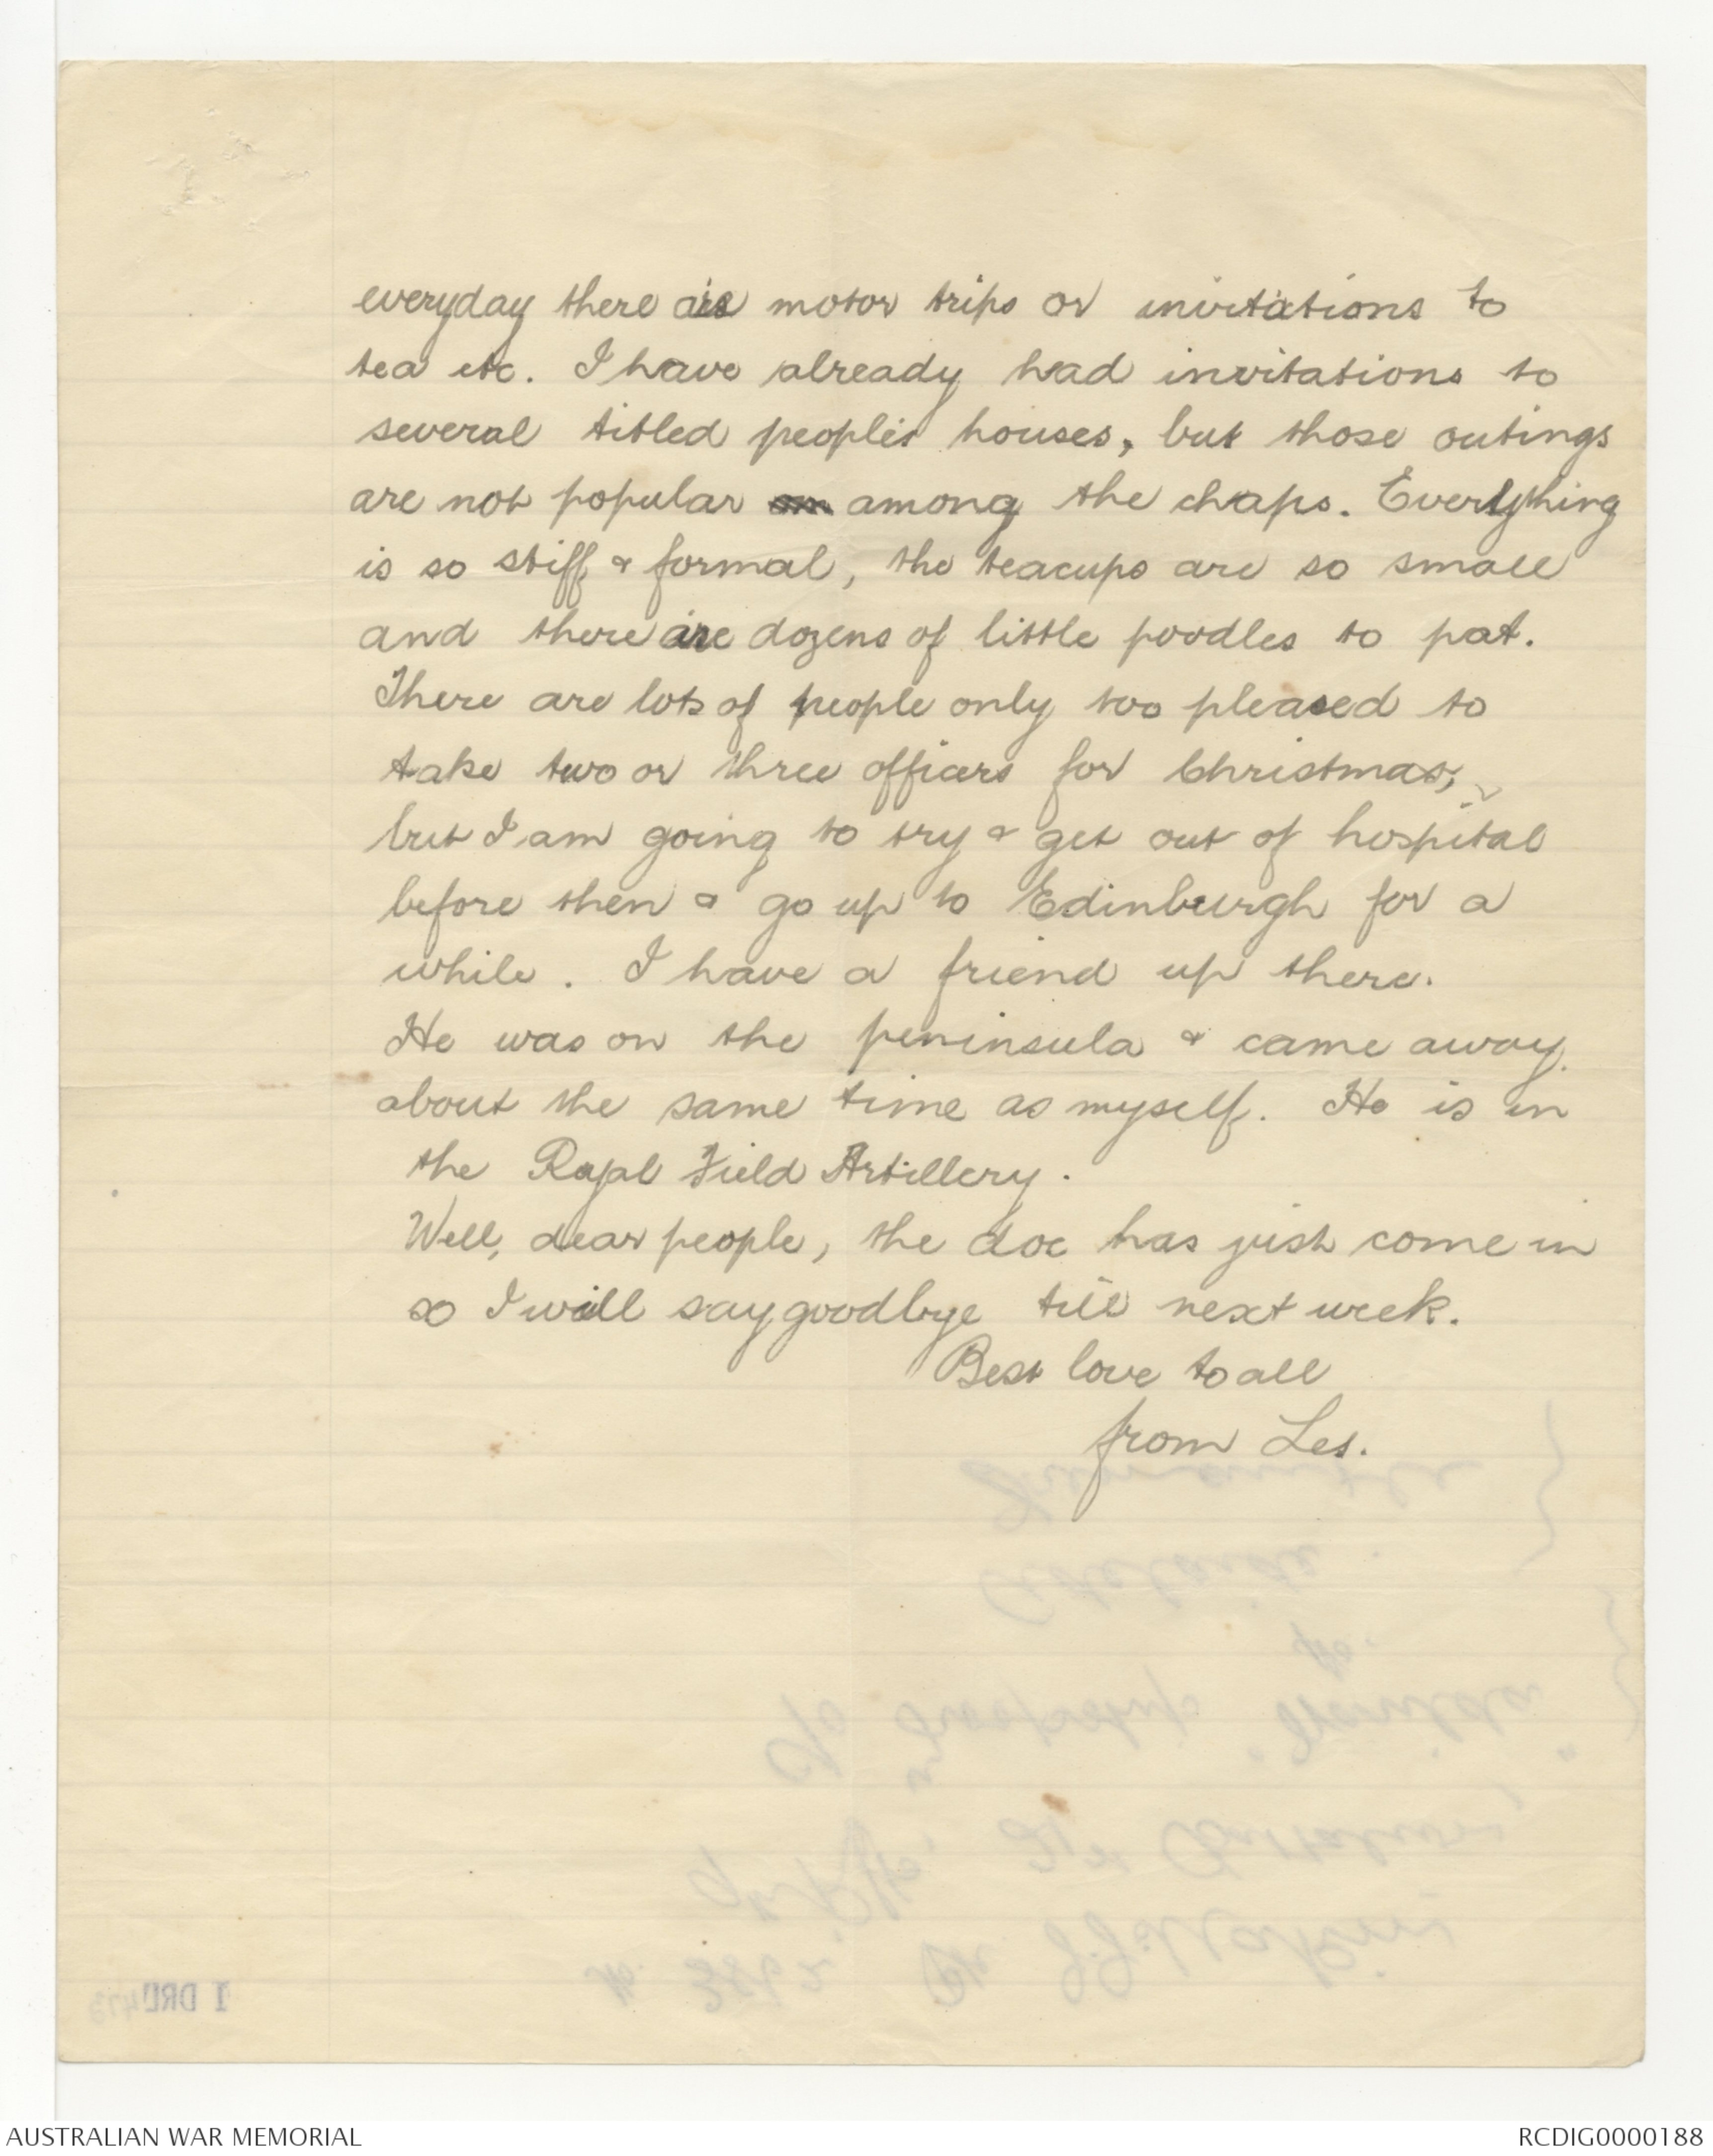 everyday there are motor trips or invitations to
tea etc. I have already had invitations to
several titled people's houses, but those outings
are not popular among the chaps. Everything
is so stiff & formal, the teacups are so small
and there are dozens of little poodles to pat.
There are lots of people only too pleased to
take two or three officers for Christmas,
but I am going to try & get out of hospital
before then & go up to Edinburgh for a
while. I have a friend up there.
He was on the peninsula & came away
about the same time as myself. He is in
the Royal Field Artillery.
Well, dear people, the doc has just come in
so I will say goodbye till next week.
Best love to all
from Les.
1 DRL
AUSTRALIAN WAR MEMORIAL
RCDIG0000188